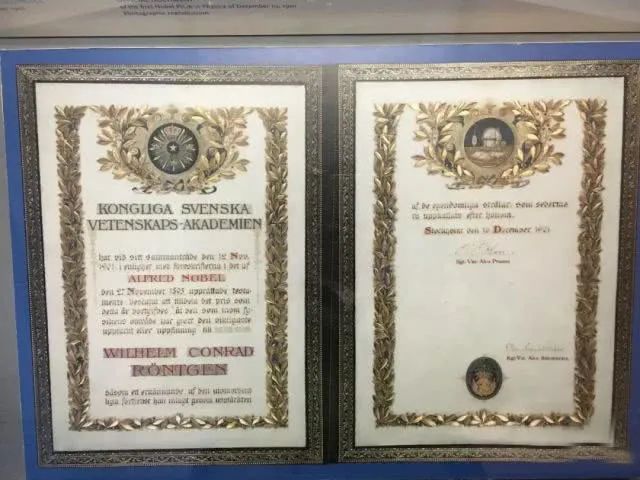 of the first Nobel Prize in Physics of December 10, 1901
KONGLIGA SVENSKA
VETENSKAPS-AKADEMIEN
har vid sitt sammanträde den 12 Nov.
1901 i enlighet med föreskrifterna i det af
ALFRED NOBEL
den 27 November 1895 upprättade testa-
mente beslutat att tilldela det pris som
detta år bortgifves åt den som inom fy-
sikens område har gjort den viktigaste
upptäckt eller uppfinning till
WILHELM CONRAD
RÖNTGEN
såsom ett erkännande af den utomordent-
liga förtjenst han inlagt genom upptäckten
af de egendomliga strålar, som sedermera
uppkallats efter honom.
Stockholm den 10 December 1901
Kgl. Vet. Aks Preses
Kgl Vet. Aks Sekreterare